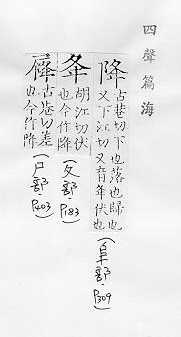 四聲篇海
降 古巷切下也落也歸也
又下江切又音年伏也
(阜部·P309)
夅 胡江切伏
也今作降
(夂部·P183)
古巷切差
也今作降
(尸部·P403)